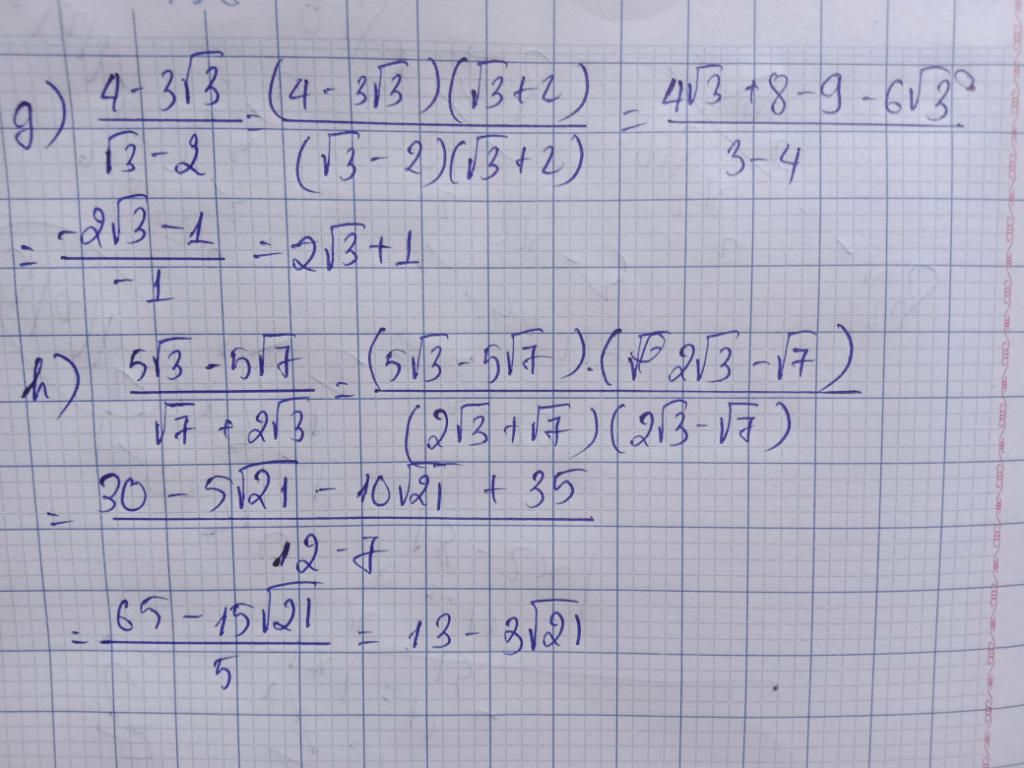 g) (4 - 3√3)/(√3 - 2) = ((4 - 3√3)(√3 + 2))/((√3 - 2)(√3 + 2)) = (4√3 + 8 - 9 - 6√3)/(3 - 4)
= (-2√3 - 1)/(-1) = 2√3 + 1
h) (5√3 - 5√7)/(√7 + 2√3) = ((5√3 - 5√7).(2√3 - √7))/((2√3 + √7)(2√3 - √7))
= (30 - 5√21 - 10√21 + 35)/(12 - 7)
= (65 - 15√21)/5 = 13 - 3√21